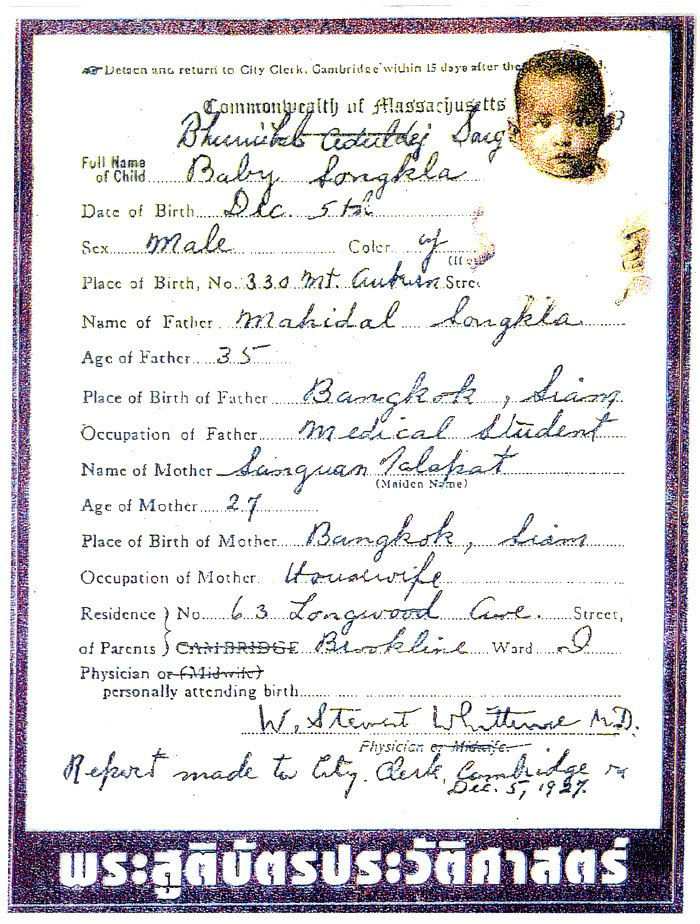 Detach and return to City Clerk, Cambridge within 15 days after the
Commonwealth of Massachusetts
Bhumibal Aduldej Song
Full Name of Child Baby Songkla
Date of Birth Dec. 5th
Sex Male Color y
Place of Birth, No. 330 Mt. Auburn Stree
Name of Father Mahidal Songkla
Age of Father 35
Place of Birth of Father Bangkok, Siam
Occupation of Father Medical Student
Name of Mother Sanguan Talapat
(Maiden Name)
Age of Mother 27
Place of Birth of Mother Bangkok, Siam
Occupation of Mother Housewife
Residence No. 63 Longwood Ave. Street,
of Parents CAMBRIDGE Brookline Ward
Physician or (Midwife)
personally attending birth
W. Stewart Whittemore M.D.
Physician or Midwife.
Report made to City Clerk, Cambridge
Dec. 5, 1927.
พระสูติบัตรประวัติศาสตร์